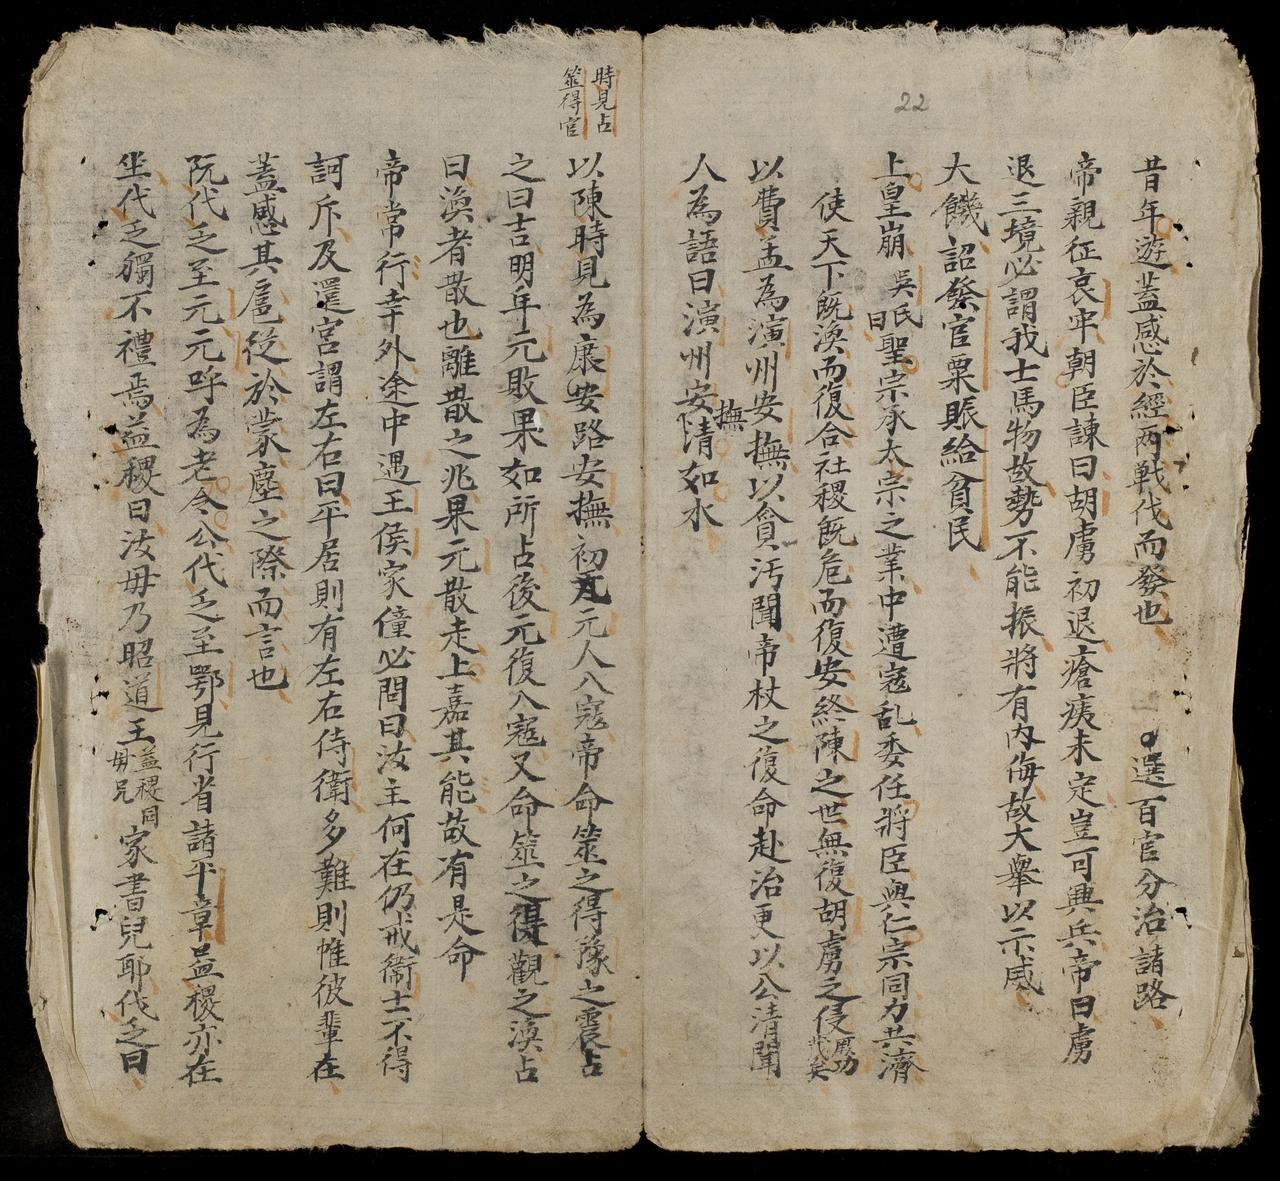 22
昔年遊蓋感於經兩戰伐而發也
選百官分治諸路
帝親征哀牢朝臣諫曰胡虜初退瘡痍未定豈可興兵帝曰虜
退三境必謂我士馬物故勢不能振將有內侮故大舉以示威
大饑詔發官粟賑給貧民
上皇崩 吳氏曰聖宗承太宗之業中遭寇乱委任將臣與仁宗同力共濟
使天下既渙而復合社稷既危而復安終陳之世無復胡虜之侵厥功茂矣
以費孟為演州安撫以貪汚聞帝杖之復命赴治更以公清聞
人為語曰演州安撫清如水
時見占
筮得官
以陳時見為康安路安撫初元人入寇帝命筮之得豫之震占
之曰吉明年元敗果如所占後元復入寇又命筮之得觀之渙占
曰渙者散也離散之兆果元散走上嘉其能故有是命
帝常行幸外途中遇王侯家僮必問曰汝主何在仍戒衞士不得
訶斥及還宮謂左右曰平居則有左右侍衛多難則惟彼輩在
蓋感其扈從於蒙塵之際而言也
阮代乏至元元呼為老令公代乏至鄂見行省諸平章益稷亦在
坐代乏獨不禮焉益稷曰汝毋乃昭道王益稷同毋兄家書兒耶代乏曰